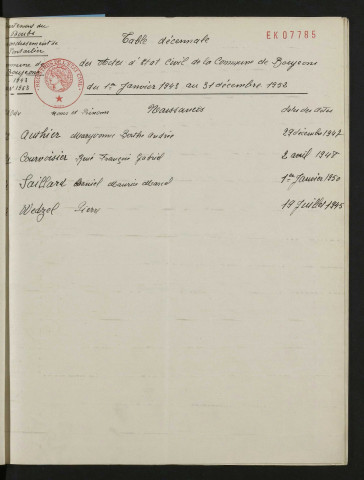 Doubs
Table décennale
EK 07785
des Actes d'Etat Civil de la Commune de
du 1er Janvier 1943 au 31 décembre 1952
1943
1952
Noms et Prénoms
Naissances
dates des actes
Authier Maryvonne Berthe Andrée
29 décembre 1947
Courvoisier René François Gabriel
2 avril 1948
Saillard Daniel Maurice Marcel
1er Janvier 1950
Wetzel Pierre
19 Juillet 1945